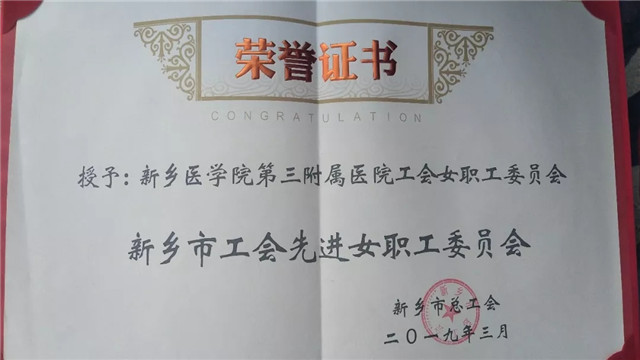 荣誉证书
CONGRATULATION
授予：新乡医学院第三附属医院工会女职工委员会
新乡市工会先进女职工委员会
新乡市总工会
二〇一九年三月